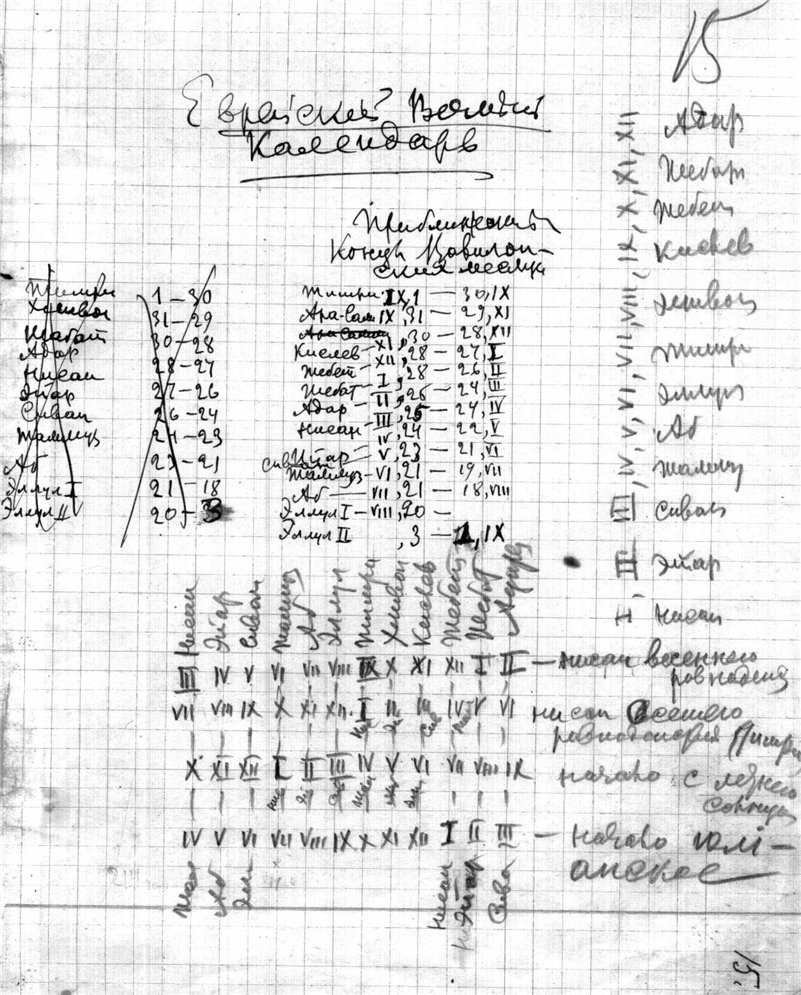 15
Еврейский
Календарь
Конец Вавилон-
ских месяц
Тишри 1—30
Хешван 31—29
Шабат 30—28
Адар 28—27
Нисан 27—26
Эйар 26—24
Сиван 24—23
Таммуз 23—21
Аб 21—18
Эллул I 20—3
Эллул II
Тишри IX,1 — 30,IX
Ара-Сам IX,31 — 29,XI
30 — 28,XII
Кислев XI,28 — 27,I
Тебет XII,28 — 26,II
Шебат I,26 — 24,III
Адар II,25 — 24,IV
Нисан III,24 — 22,V
Ийар IV,23 — 21,VI
Сиван V
Таммуз — VI,21 — 19,VII
Аб — VII,21 — 18,VIII
Эллул I — VIII,20 —
Эллул II ,3 — 1,IX
IV, V, VI, VII, VIII, IX, X, XI, XII
Адар
Шебат
Тебет
Кислев
Хешван
Тишри
Эллул
Аб
Таммуз
III Сиван
II Эйар
I Нисан
Нисан Эйар Сиван Таммуз Аб Эллул Тишри Хешван Кислев Тебет Шебат Адар
III IV V VI VII VIII IX X XI XII I II — нисан весеннего
равноденств
VII VIII IX X XI XII I II III IV V VI нисан осеннего
равноденствия Тишри
X XI XII I II III IV V VI VII VIII IX начало с летнего
солнца
IV V VI VII VIII IX X XI XII I II III — начало юли-
анское
Там Аб Эл Нисан Эйар Сива
15.